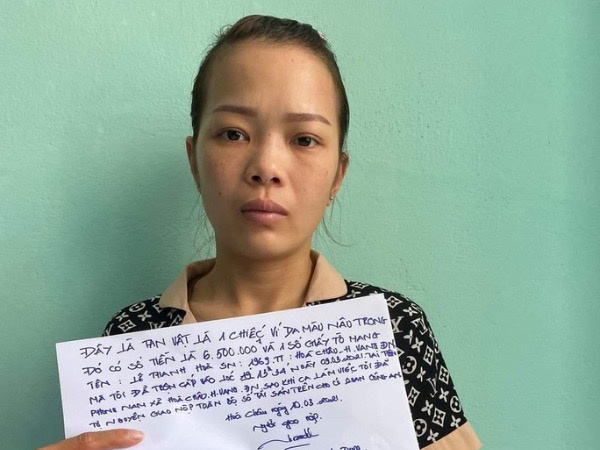 ĐÂY LÀ TAN VẬT LÀ 1 CHIẾC VÍ DA MÀU NÂU TRONG
ĐÓ CÓ SỐ TIỀN LÀ 6.500.000 VÀ 1 SỐ GIẤY TỜ MANG
TÊN: LÊ THANH HOÀ SN: 1969. TT: HOÀ CHÂU. H. VANG. ĐN
MÀ TÔI ĐÃ TRỘM CẮP VÀO LÚC NGÀY 09.03.2021 TẠI
PHONG NAM XÃ HOÀ CHÂU. H. VANG. ĐN. SAU KHI CA LÀM VIỆC TÔI ĐÃ
TỰ NGUYỆN GIAO NỘP TOÀN BỘ SỐ TÀI SẢN TRÊN CHO CƠ QUAN CÔNG AN
Hoà Châu ngày 10.03.2021.
Người giao nộp.